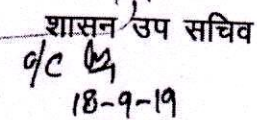 शासन उप सचिव
o/c
18-9-19